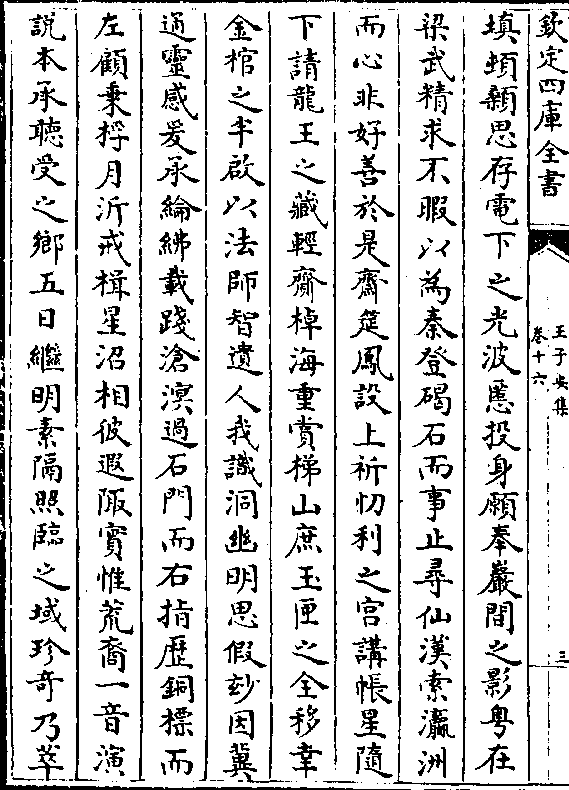 欽定四庫全書
王子安集
卷十六
三
填蝢顙思存電下之光波慝投身願奉巖間之影粤在
梁武精求不暇以為秦登碣石而事止尋仙漢索瀛洲
而心非好善於是齋筵鳳設上祈忉利之宫講帳星隨
下請龍王之藏輕齎棹海重賞梯山庶玉匣之全移幸
金棺之半啟以法師智遺人我識洞幽明思假玅因冀
通靈感爰承綸綍載踐滄溟過石門而右指歴銅標而
左顧乗桴月泝戒楫星沼相彼遐陬實惟荒裔一音演
說本承聽受之鄉五日繼明素隔照臨之域珍竒乃萃